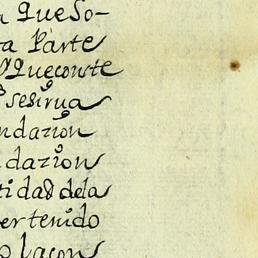 a que So-
ta Parte
Queconste
se sirua
ndazion
dazion
tidad dela
ertenido
o lacons